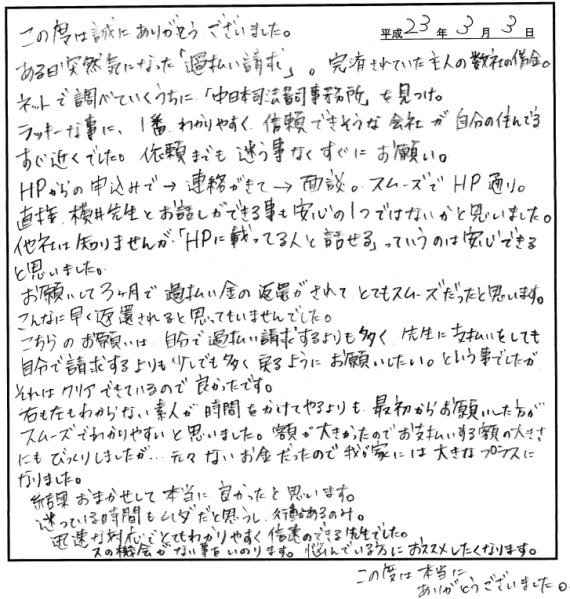 平成23年3月3日
この度は誠にありがとうございました。
ある日突然気になった「過払い請求」。完済されていた主人の数社の借金。
ネットで調べていくうちに、「中日本司法書司事務所」を見つけ。
ラッキーな事に、1番わかりやすく信頼できそうな会社が自分の住んでる
すぐ近くでした。依頼までも迷う事なくすぐにお願い。
HPからの申込みで→連絡がきて→面談。スムーズでHP通り。
直接、横井先生とお話しができる事も安心の1つではないかと思いました。
他社は知りませんが、「HPに載ってる人と話せる」っていうのは安心できる
と思いました。
お願いして3ヶ月で過払い金の返還がされて、とてもスムーズだったと思います。
こんなに早く返還されると思ってもいませんでした。
こちらのお願いは、自分で過払い請求するよりも多く、先生に支払いをしても
自分で請求するよりも少しでも多く戻るようにお願いしたい。という事でしたが
それはクリアできているので良かったです。
右も左もわからない素人が時間をかけてやるよりも、最初からお願いした方が
スムーズでわかりやすいと思いました。額が大きかったのでお支払いする額の大きさ
にもびっくりしましたが…元々ないお金だったので我が家には大きなプラスに
なりました。
結果おまかせして本当に良かったと思います。
迷っている時間もムダだと思うし、行動あるのみ。
迅速な対応でとてもわかりやすく信頼のできる先生でした。
の機会がない事をいのります。悩んでいる方におススメしたくなります。
この度は本当に
ありがとうございました。